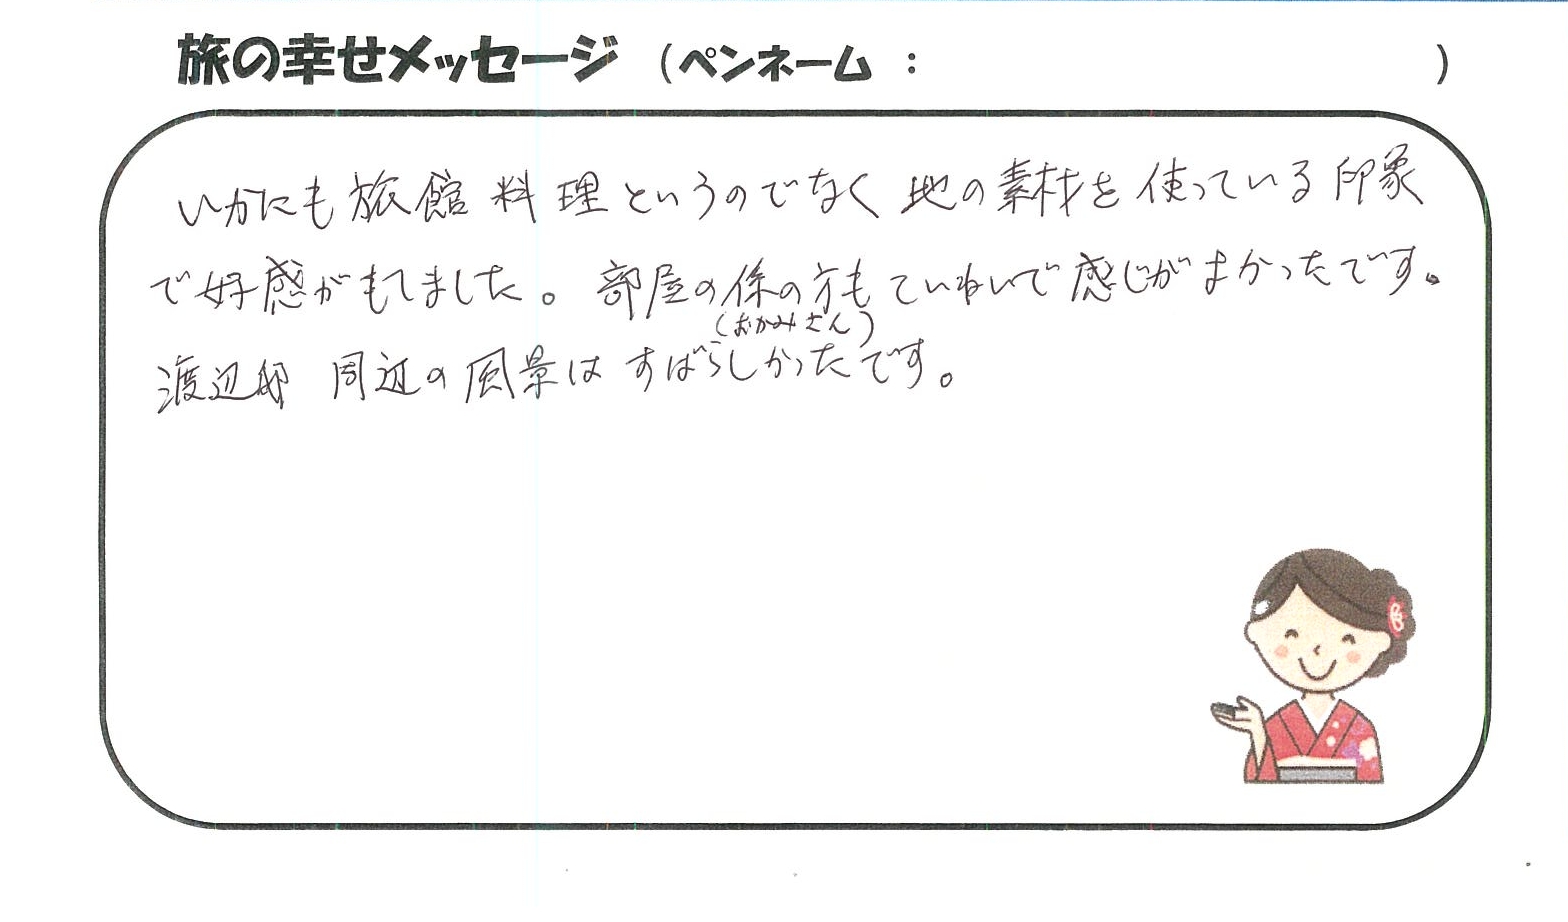 旅の幸せメッセージ （ペンネーム ： ）
いかにも旅館料理というのでなく 地の素材を使っている印象
で好感がもてました。部屋の係の方もていねいで感じがよかったです。
（おかみさん）
渡辺邸 周辺の風景はすばらしかったです。